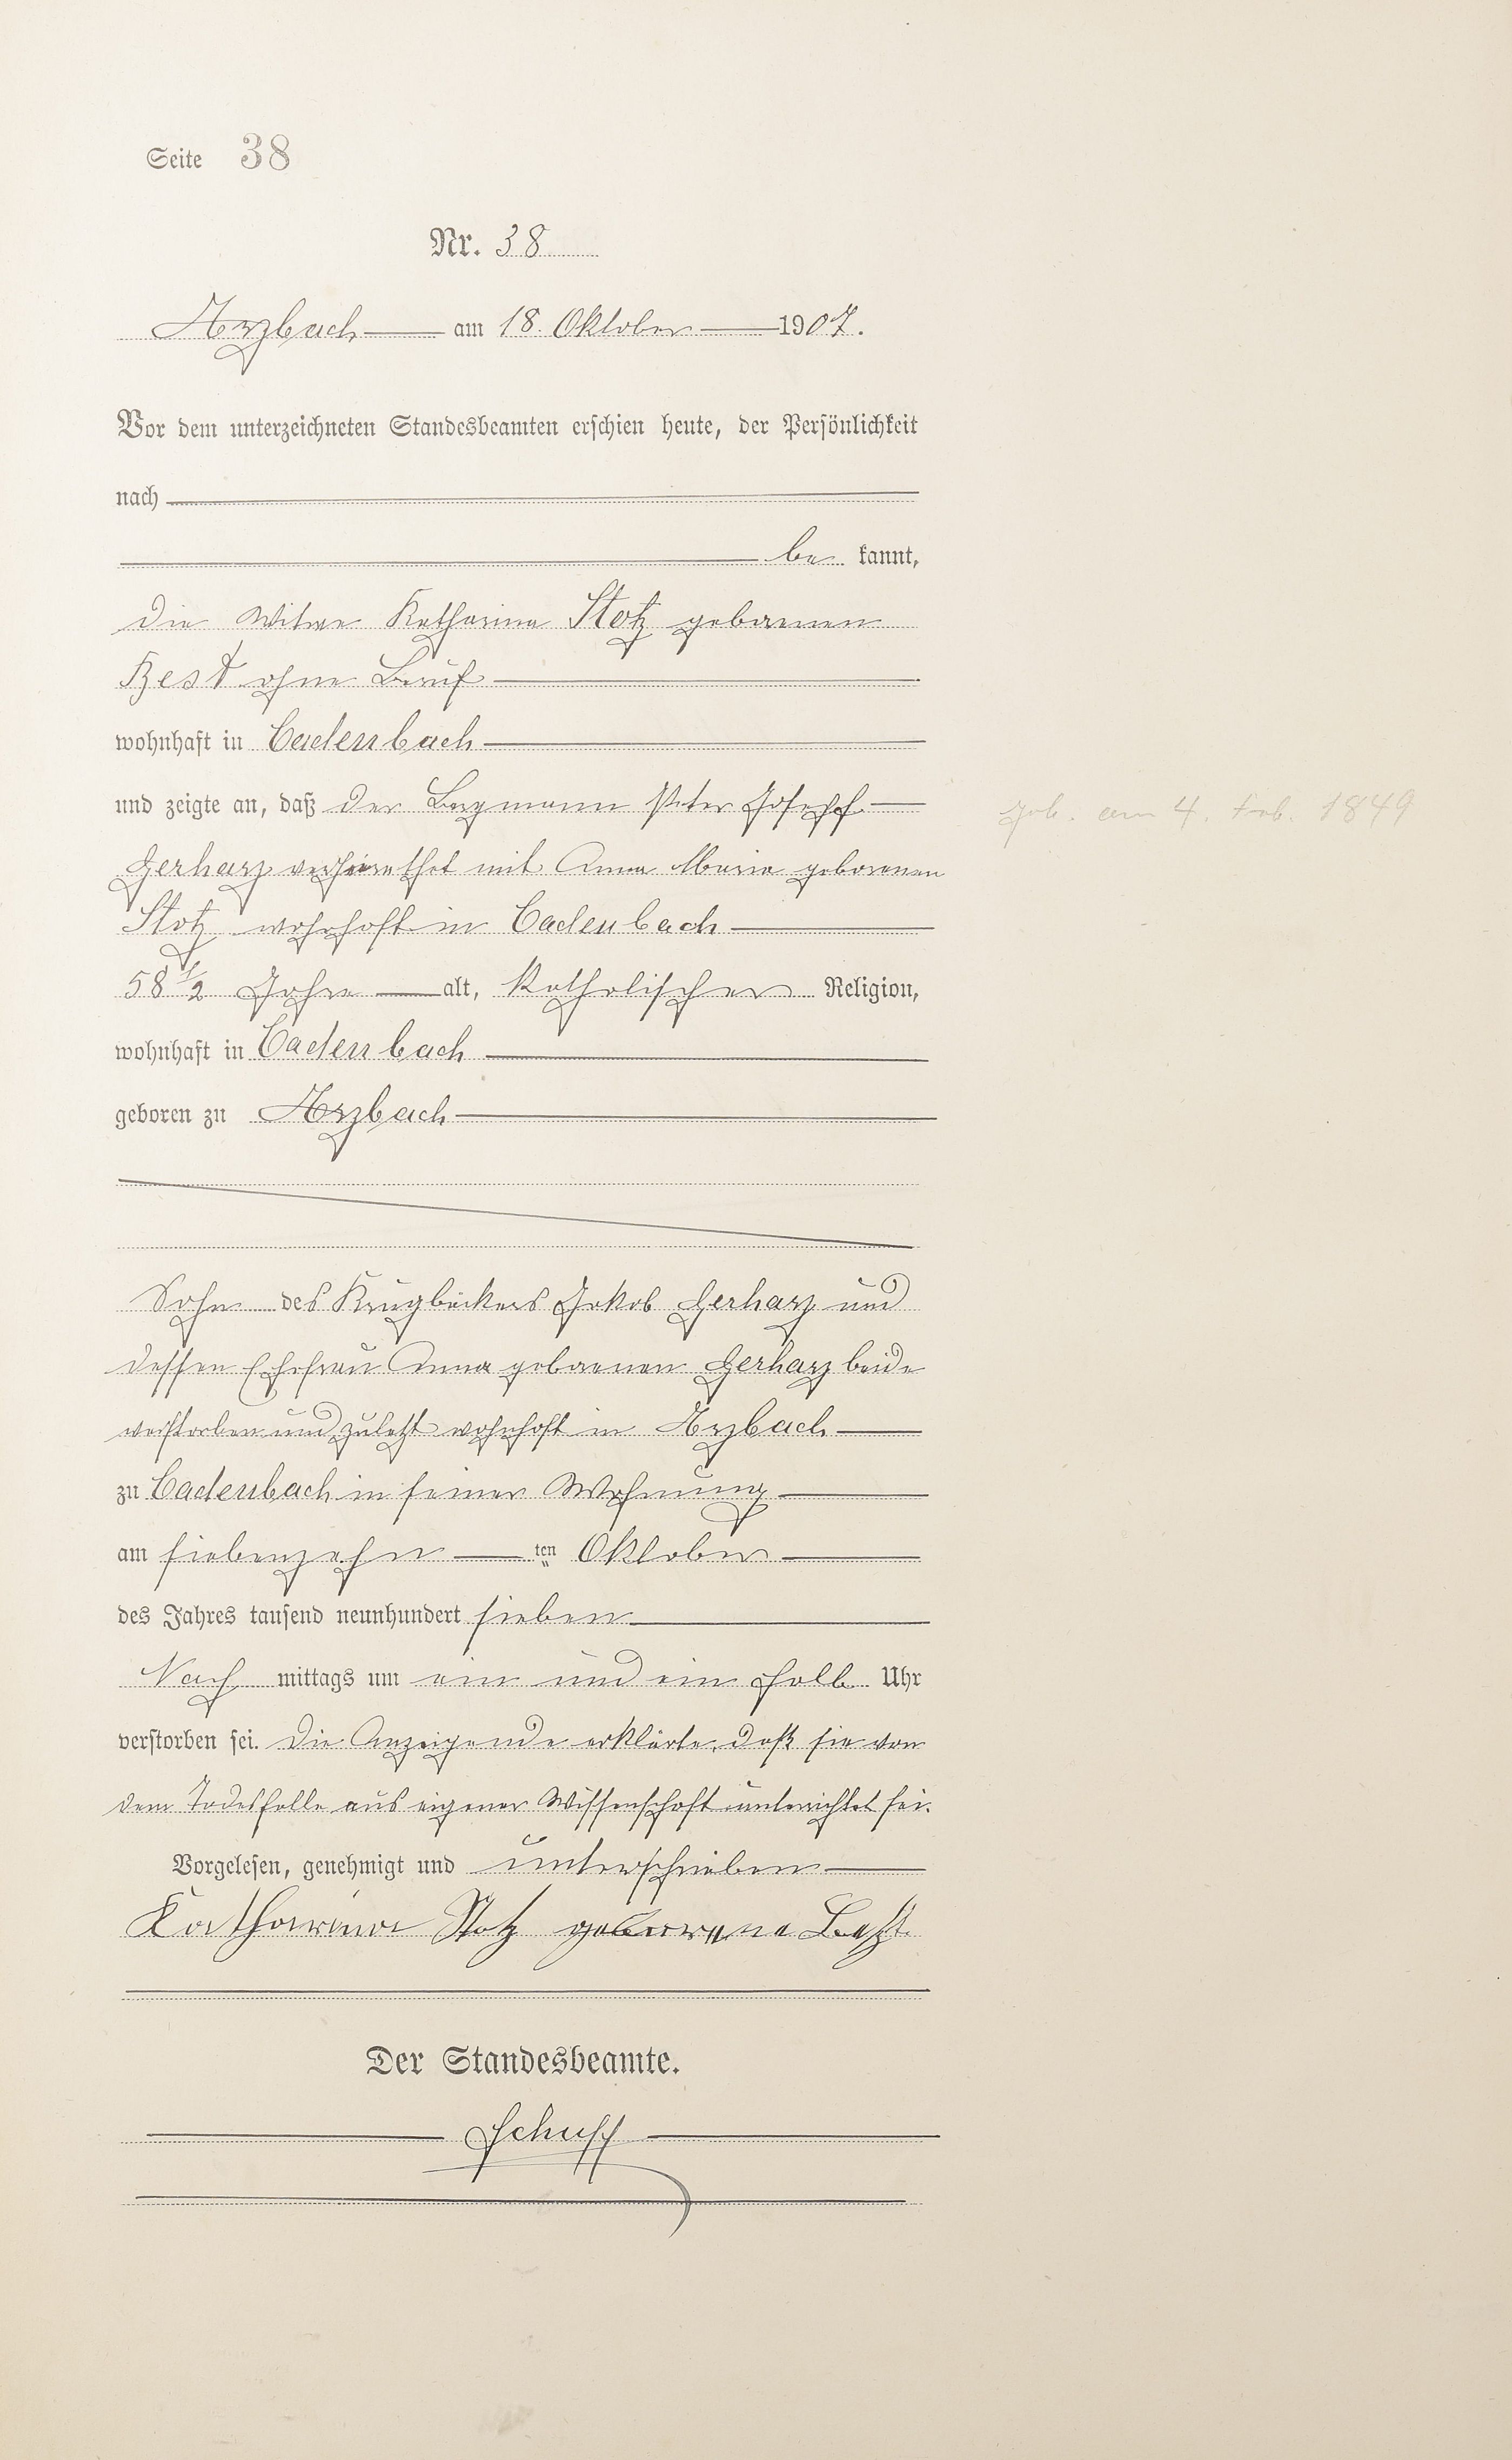 Seite 38
Nr. 38
Arzbach am 18. Oktober 1907.
Vor dem unterzeichneten Standesbeamten erschien heute, der Persönlichkeit
nach
be kannt,
die Witwe Katharina Stotz geborenen
Best ohne Beruf
wohnhaft in Cadenbach
und zeigte an, daß der Bergmann Peter Josepf
geb. am 4. Feb. 1849
Gerharz verheirathet mit Anna Maria geborenen
Stotz wohnhaft in Cadenbach
58 1/2 Jahre alt, Katholischer Religion,
wohnhaft in Cadenbach
geboren zu Arzbach
Sohn des Krugbäckers Jakob Gerharz und
dessen Ehefrau Anna geborenen Gerharz beide
verstorben und zuletzt wohnhaft in Arzbach
zu Cadenbach in seiner Wohnung
am siebenzehn ten Oktober
des Jahres tausend neunhundert sieben
Nach mittags um ein und ein halb Uhr
verstorben sei. Die Anzeigende erklärte, daß sie von
dem Todesfalle aus eigener Wissenschaft unterrichtet sei.
Vorgelesen, genehmigt und unterschrieben
Katharina Stotz geborene Best
Der Standesbeamte.